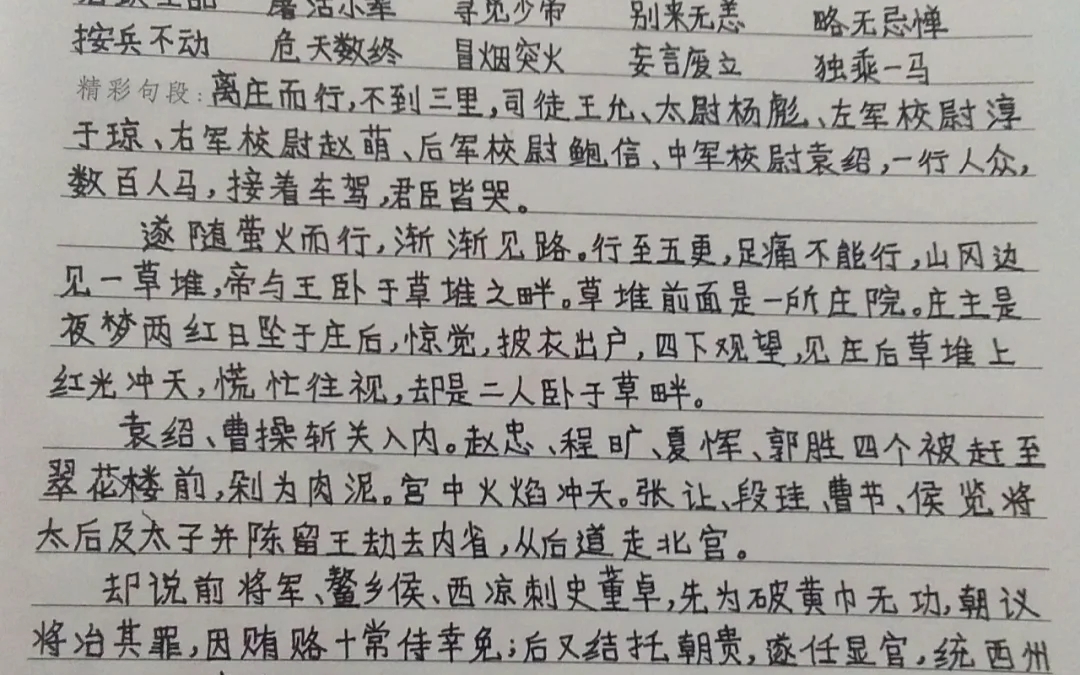 屠沽小辈 寻觅少帝 别来无恙 略无忌惮
按兵不动 危天数终 冒烟突火 妄言废立 独乘一马
精彩句段:离庄而行,不到三里,司徒王允、太尉杨彪、左军校尉淳
于琼、右军校尉赵萌、后军校尉鲍信、中军校尉袁绍,一行人众,
数百人马,接着车驾,君臣皆哭。
遂随萤火而行,渐渐见路。行至五更,足痛不能行,山冈边
见一草堆,帝与王卧于草堆之畔。草堆前面是一所庄院。庄主是
夜梦两红日坠于庄后,惊觉,披衣出户,四下观望,见庄后草堆上
红光冲天,慌忙往视,却是二人卧于草畔。
袁绍、曹操斩关入内。赵忠、程旷、夏恽、郭胜四个被赶至
翠花楼前,剁为肉泥。宫中火焰冲天。张让、段珪、曹节、侯览将
太后及太子并陈留王劫去内省,从后道走北宫。
却说前将军、鳌乡侯、西凉刺史董卓,先为破黄巾无功,朝议
将治其罪,因贿赂十常侍幸免;后又结托朝贵,遂任显官,统西州